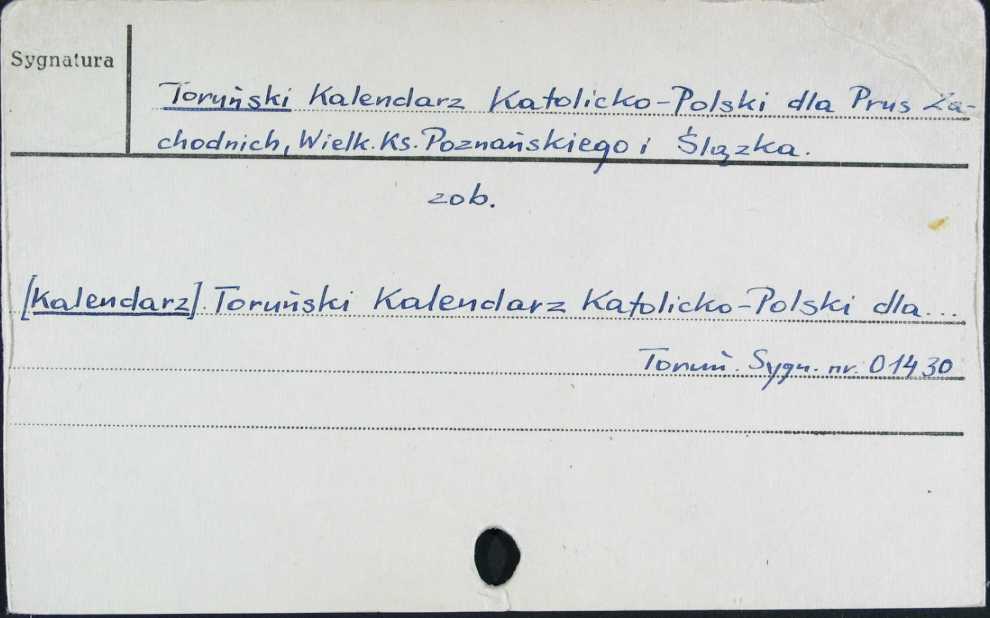 Sygnatura
Toruński Kalendarz Katolicko-Polski dla Prus Za-
chodnich, Wielk. Ks. Poznańskiego i Ślązka.
zob.
[Kalendarz]. Toruński Kalendarz Katolicko-Polski dla...
Toruń. Sygn. nr. 01430